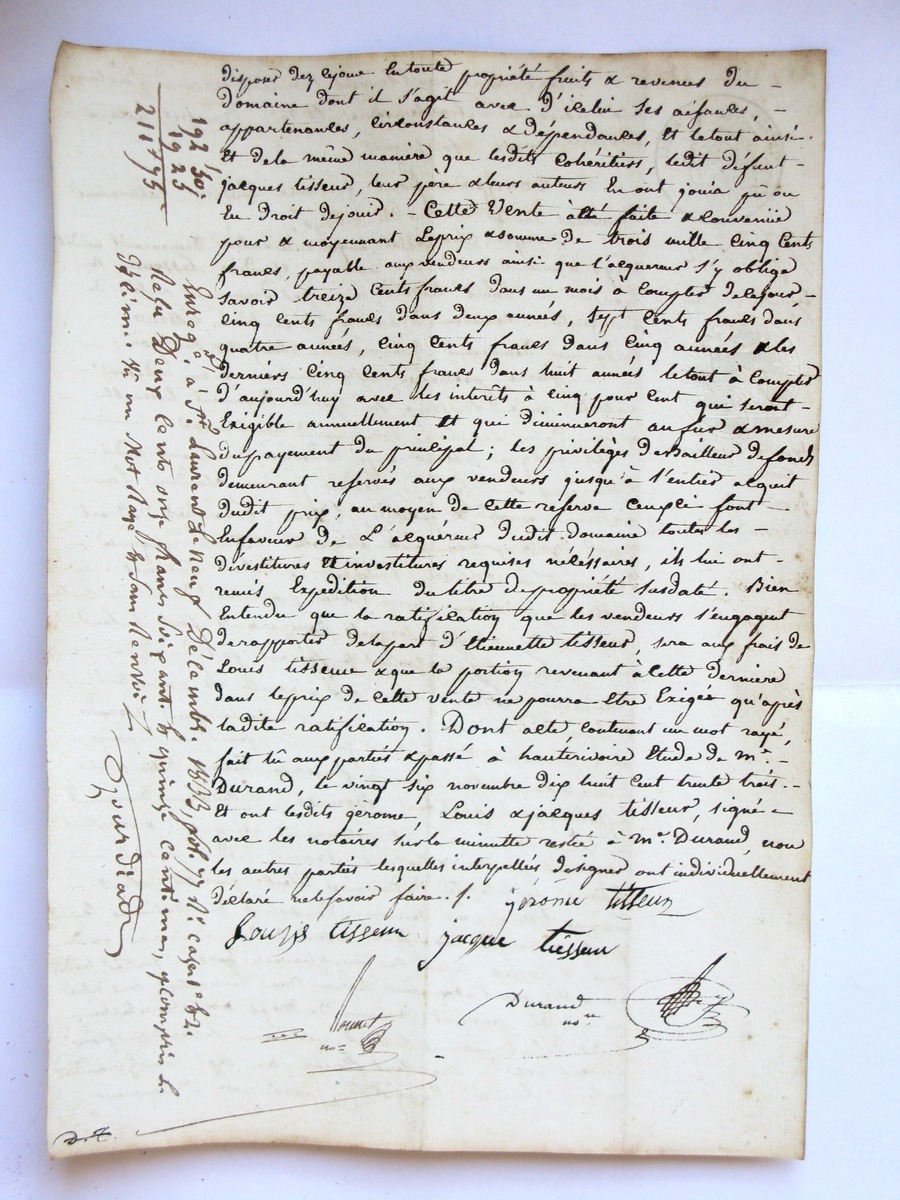 disposer dez cejour Entoute propriété fruits & revenus du -
Domaine dont il s'agit avec d'icelui ses aisances, -
appartenances, Circonstances & dépendances, Et letout ainsi
Et dela même manière que lesdits Cohéritiers, ledit défunt -
jacques tisseur, leur père & leurs auteurs En ont joui & pu ou
Eu Droit dejouir. - Cette Vente a été faite & convenue
pour & moyennant Leprix & somme De trois mille Cinq Cents
francs, payable aux vendeurs ainsi que l'acquereur s'y oblige
Savoir treize Cents francs Dans un mois à Compter Decejour -
Cinq Cents francs Dans Deux années, Sept Cents francs dans
quatre années, Cinq Cents francs Dans Cinq années & les
Derniers Cinq Cents francs Dans huit années letout à Compter
D'aujourd'huy avec les interêts à Cinq pour Cent qui seront -
Exigible annuellement Et qui diminueront aufur & amesure
Du payement du principal ; les privilèges deBailleur defonds
demeurant reservés aux vendeurs jusqu'à l'entier acquit
Dudit prix ; au moyen de cette reserve Ceuxci font -
Enfaveur de L'acquéreur Dudit domaine toutes les -
dévestitures Et investitures requises nécéssaires, ils lui ont -
remis Expedition du titre De propriété Susdaté. Bien
Entendu que la ratification que les vendeurs s'engagent
derapporter delapart d'Etiennette tisseur, sera aux frais de
Louis tisseur & que la portion revenant à Cette Dernière
dans leprix de Cette vente ne pourra Etre Exigée qu'après
ladite ratification. Dont acte, contenant un mot rayé,
fait lû aux parties & passé à hauterivoire Etude de Me. -
Durand, le vingt six novembre dix huit Cent trente trois. -
Et ont lesdits gérome, Louis & jacques tisseur, signé -
avec les notaires Sur la minutte restée à Me. Durand, non
les autres parties lesquelles interpellées designer ont individuellement
déclaré ne le savoir faire. /.
jérome tisseur
Louis tisseur jacque tisseur
Durand
nore
no
192 50
19 25
211 75
Enreg. à St. Laurent le neuf Décembre 1833, fol. 77 Ro. cases 1 & 2.
Reçu Deux cents onze francs soixante & quinze centimes, y compris le
Décime. Vû un Mot Rayé & Sans Renvoi /.
D. T.